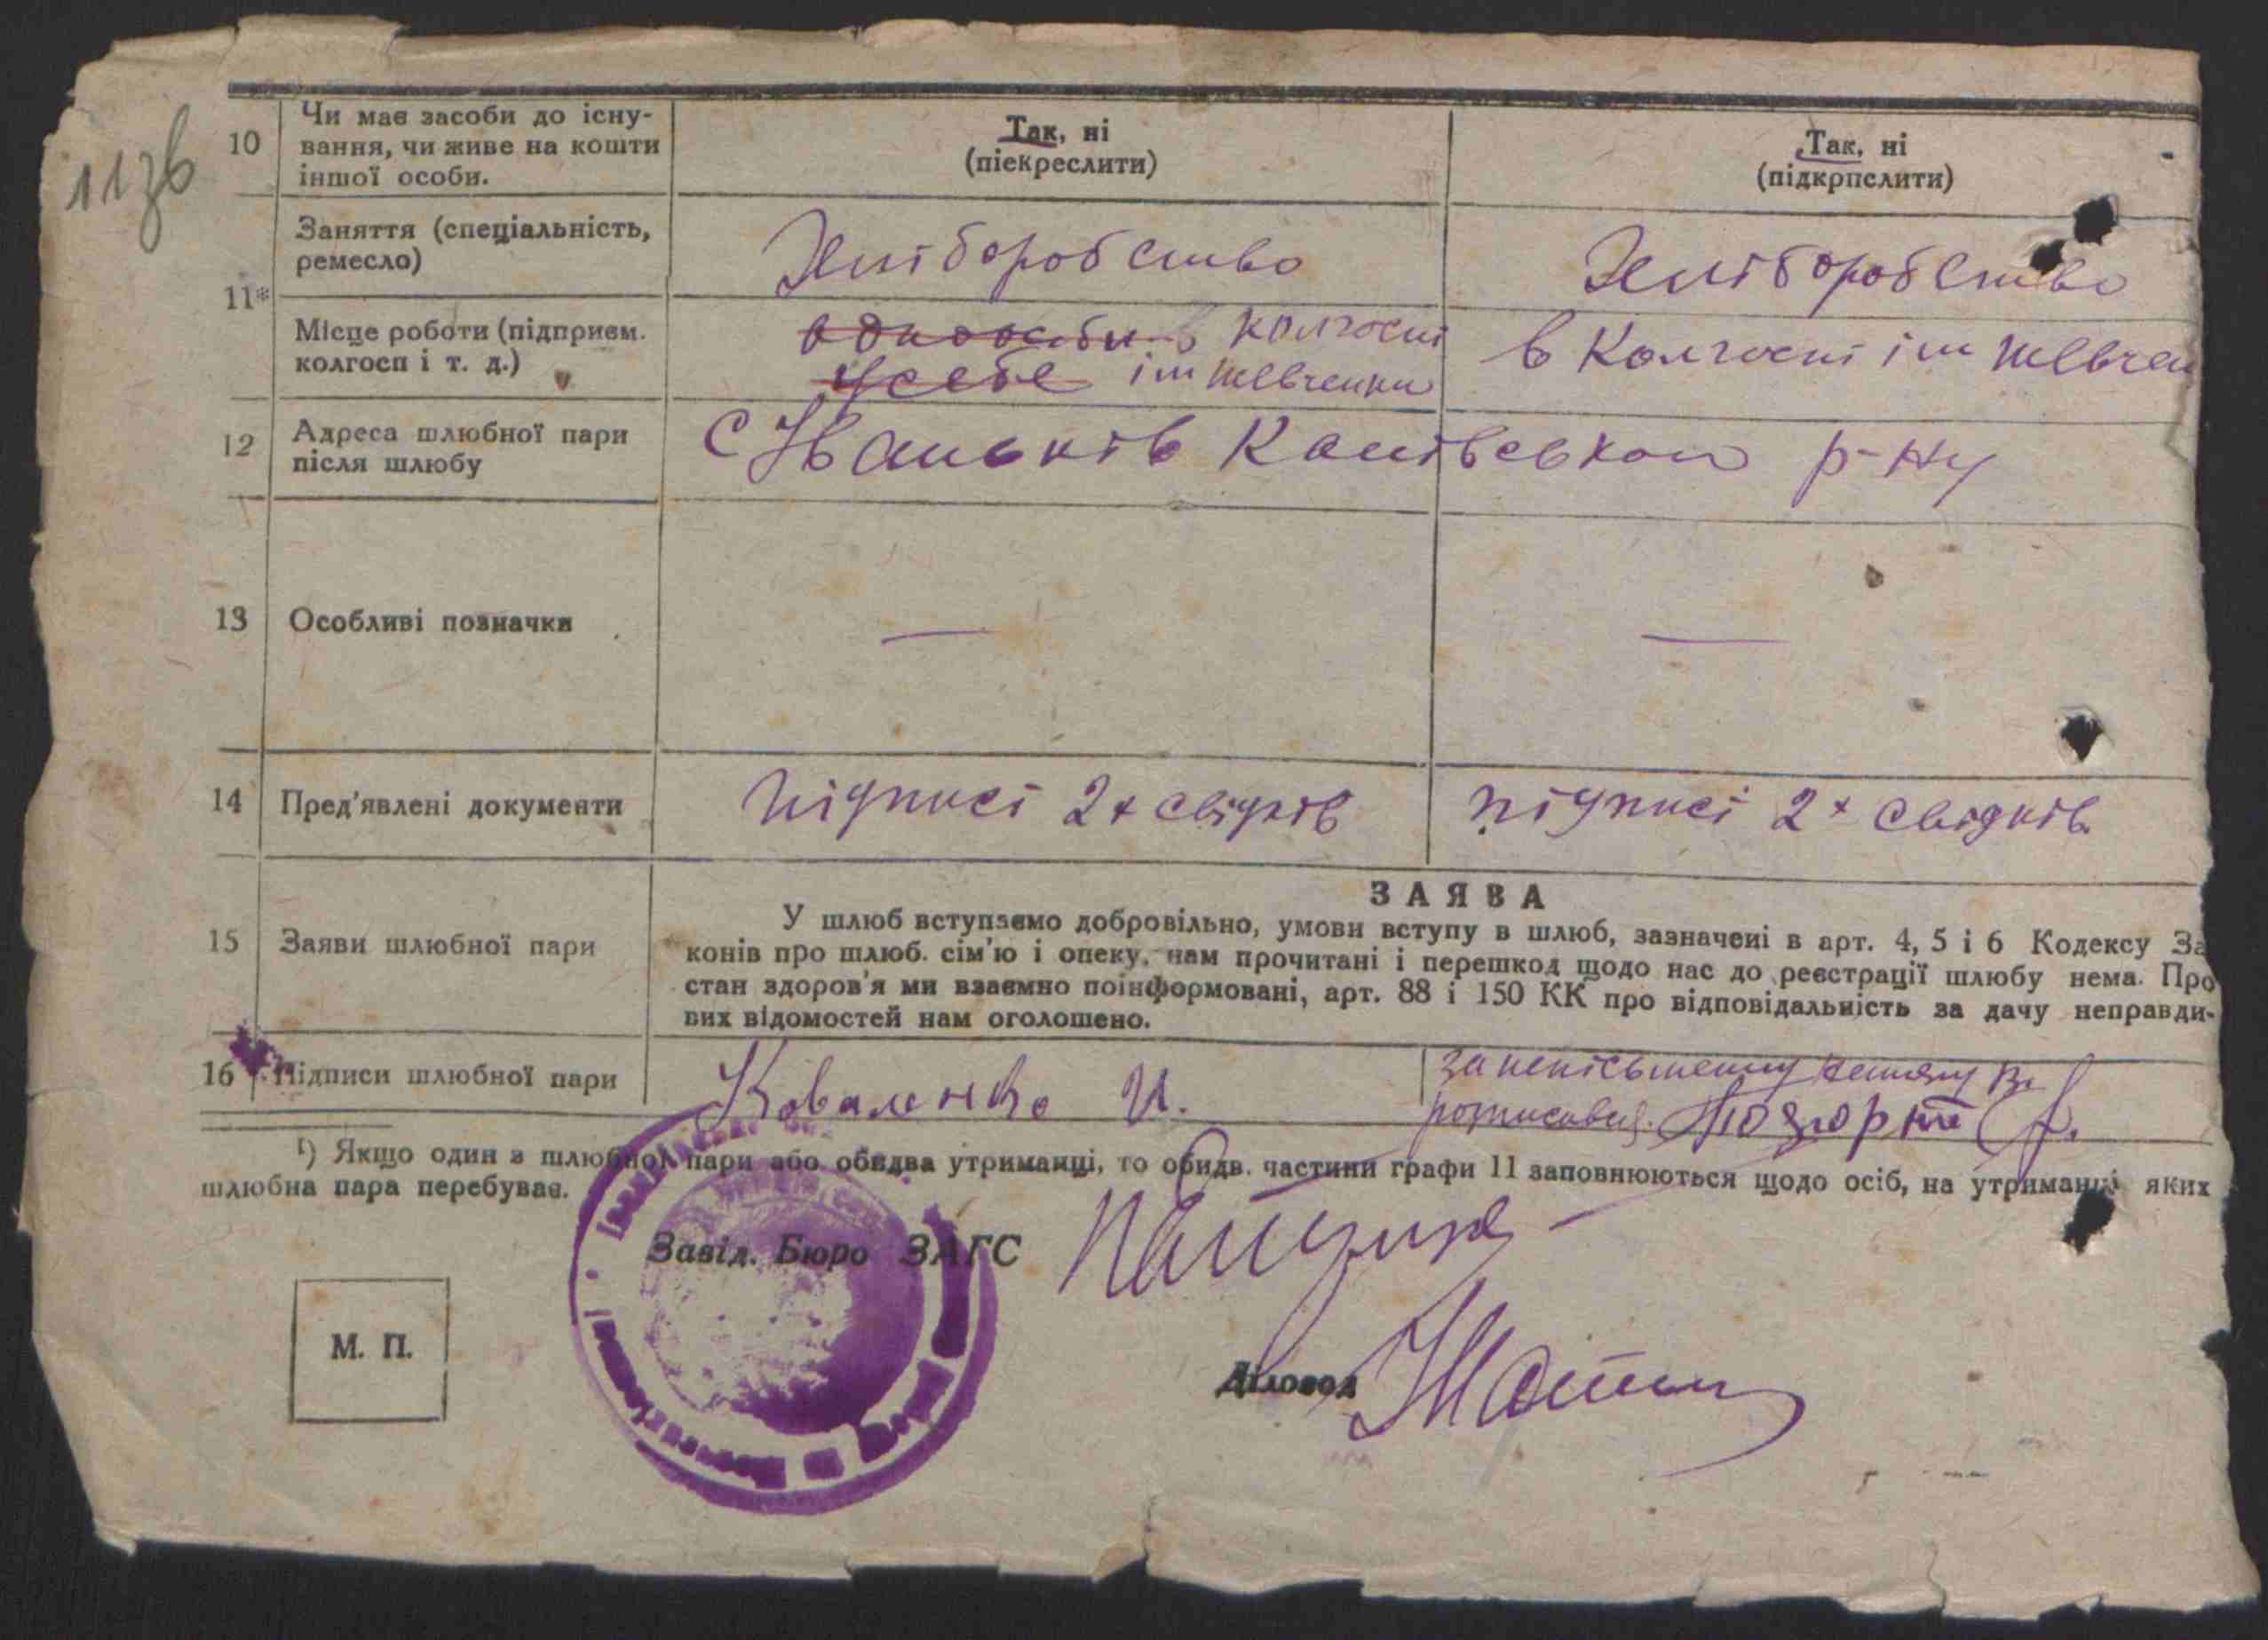 11 зв
10
Чи має засоби до існу-
вання, чи живе на кошти
іншої особи.
Так, ні
(піекреслити)
Так, ні
(підкрпслити)
11*
Заняття (спеціальність,
ремесло)
Хліборобство
Хліборобство
Місце роботи (підприєм.
колгосп і т. д.)
в колгоспі
у себе ім Шевченка
в Колгоспі ім Шевчен
12
Адреса шлюбної пари
після шлюбу
С Іваньків р-ну
13
Особливі позначки
—
—
14
Пред'явлені документи
підписі 2х свідків
підписі 2х свідків
15
Заяви шлюбної пари
ЗАЯВА
У шлюб вступаємо добровільно, умови вступу в шлюб, зазначені в арт. 4, 5 і 6 Кодексу За
конів про шлюб. сім'ю і опеку, нам прочитані і перешкод щодо нас до реєстрації шлюбу нема. Про
стан здоров'я ми взаємно поінформовані, арт. 88 і 150 КК про відповідальність за дачу неправди-
вих відомостей нам оголошено.
16
Підписи шлюбної пари
Коваленко И.
за неписьменну
росписавсь
¹) Якщо один з шлюбної пари або обидва утриманці, то обидв. частини графи 11 заповнюються щодо осіб, на утриманці яких
шлюбна пара перебуває.
Завід. Бюро ЗАГС
М. П.
Діловод